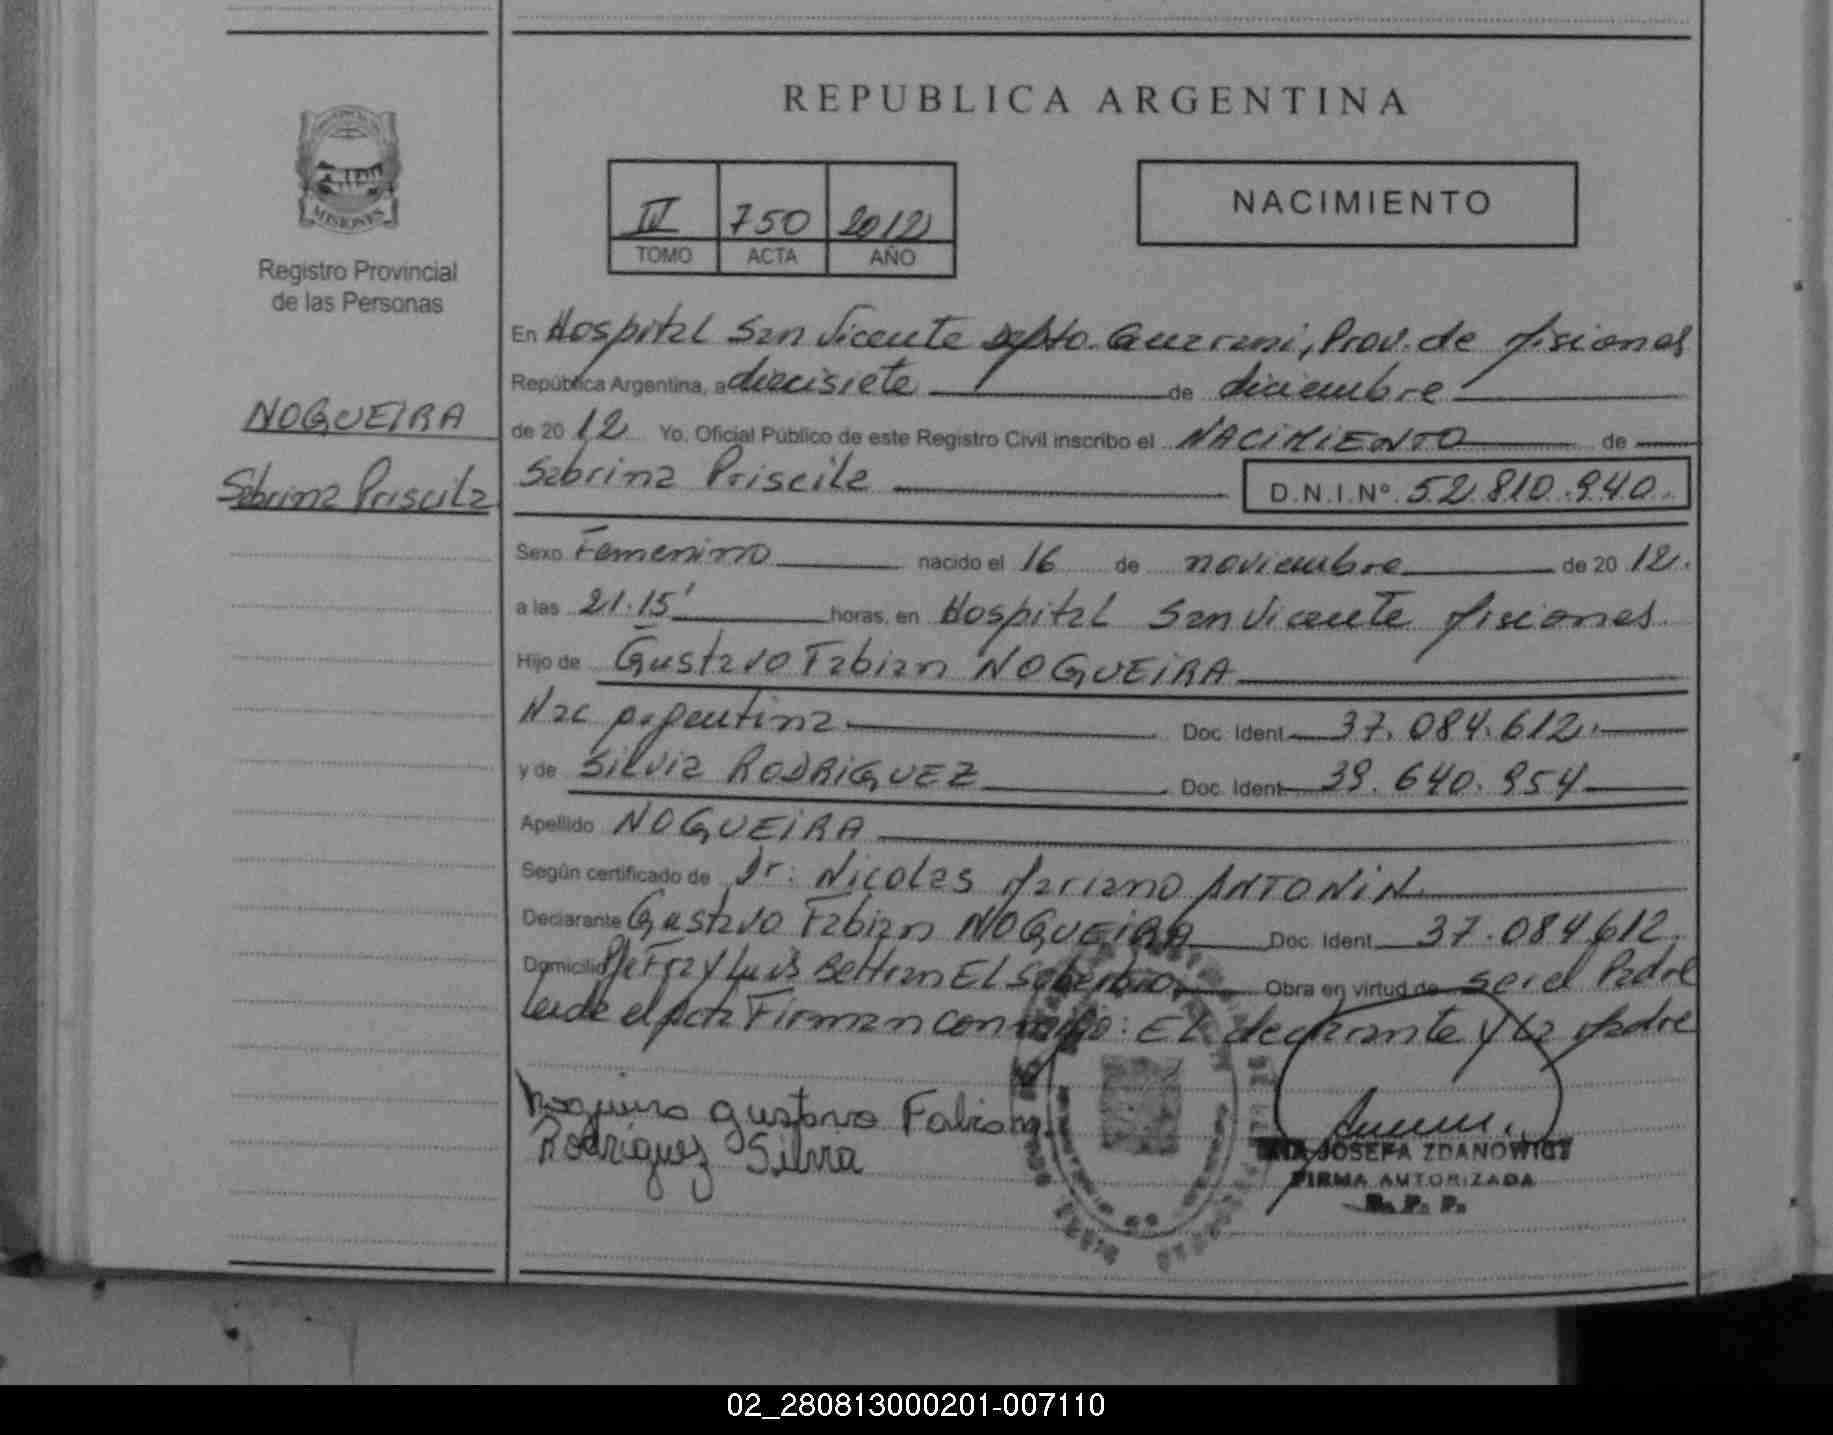 REPUBLICA ARGENTINA
MISIONES
Registro Provincial
de las Personas
IV 750 2012
TOMO ACTA AÑO
NACIMIENTO
NOGUEIRA
Sabrina Priscila
En Hospital San Vicente Dpto. Guarani, Prov. de Misiones
República Argentina, a diecisiete de diciembre
de 2012 Yo, Oficial Público de este Registro Civil inscribo el NACIMIENTO de
Sabrina Priscila D.N.I.Nº 52.810.940.
Sexo Femenino nacido el 16 de noviembre de 2012.
a las 21.15' horas, en Hospital San Vicente Misiones.
Hijo de Gustavo Fabian NOGUEIRA
Nac argentina Doc. Ident. 37.084.612.
y de Silvia RODRIGUEZ Doc. Ident. 39.640.954
Apellido NOGUEIRA
Según certificado de Dr. Nicolas Mariano ANTONIN
Declarante Gustavo Fabian NOGUEIRA Doc. Ident. 37.084.612.
Domicilio y Luis Beltran El Soberbio Obra en virtud de ser el Padre
Leide el acta Firman conmigo: El declarante y la Madre
Nogueira gustavo Fabian
Rodriguez Silvia
JOSEFA ZDANOWICZ
FIRMA AUTORIZADA
R. P. P.
02_280813000201-007110